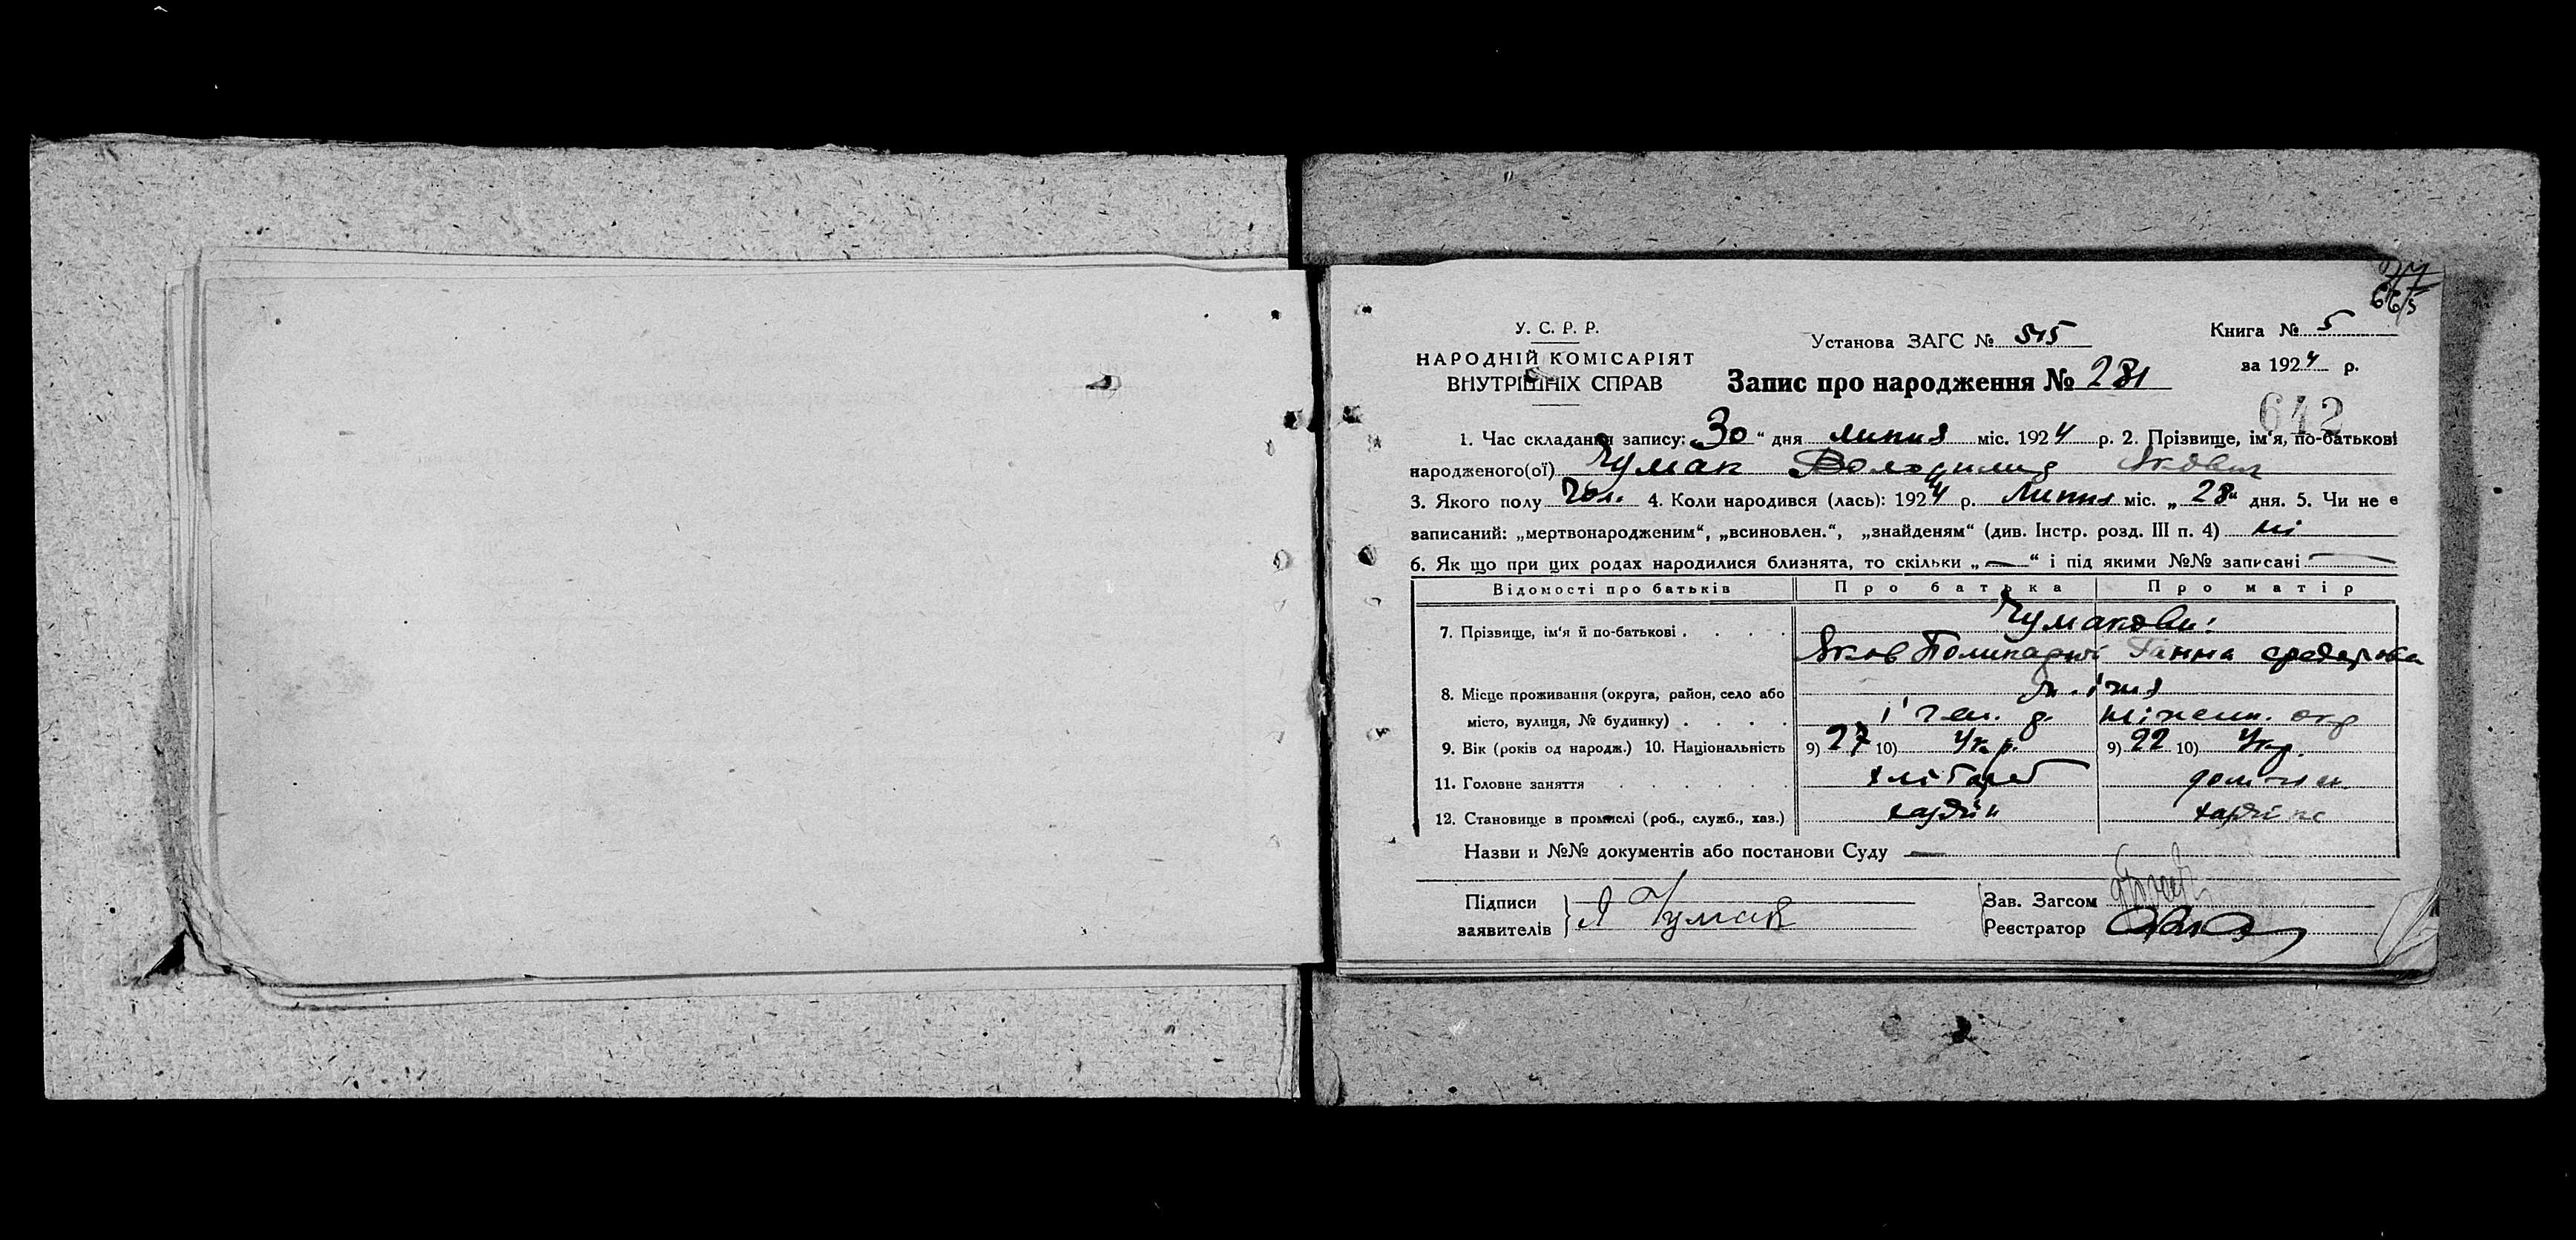 У. С. Р. Р.
НАРОДНІЙ КОМІСАРІЯТ
ВНУТРІШНІХ СПРАВ
Установа ЗАГС № 515
Запис про народження № 281
Книга № 5
за 1924 р.
642
1. Час складання запису: „30“ дня липня міс. 1924 р. 2. Прізвище, ім'я, по-батькові
народженого(ої) Чумак Володимир Якович
3. Якого полу Чол. 4. Коли народився (лась): 1924 р. Липня міс. „28“ дня. 5. Чи не є
записаний: „мертвонародженим“, „всиновлен.“, „знайденям“ (див. Інстр. розд. III п. 4) ні
6. Як що при цих родах народилися близнята, то скільки „—“ і під якими №№ записані —
Відомості про батьків Про батька Про матір
7. Прізвище, ім'я й по-батькові . . . . Чумакови:
Яков Полікарпов Ганна Федоровна
8. Місце проживання (округа, район, село або
місто, вулиця, № будинку) . . . .
9. Вік (років од народж.) 10. Національність 9) 27 10) Укр. 9) 22 10) Укр.
11. Головне заняття . . . . . . хлібороб
12. Становище в промислі (роб., служб., хаз.)
Назви и №№ документів або постанови Суду —
Підписи
заявителів Я Чумак
Зав. Загсом
Реєстратор